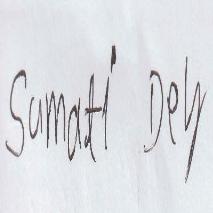 Sumati Dey